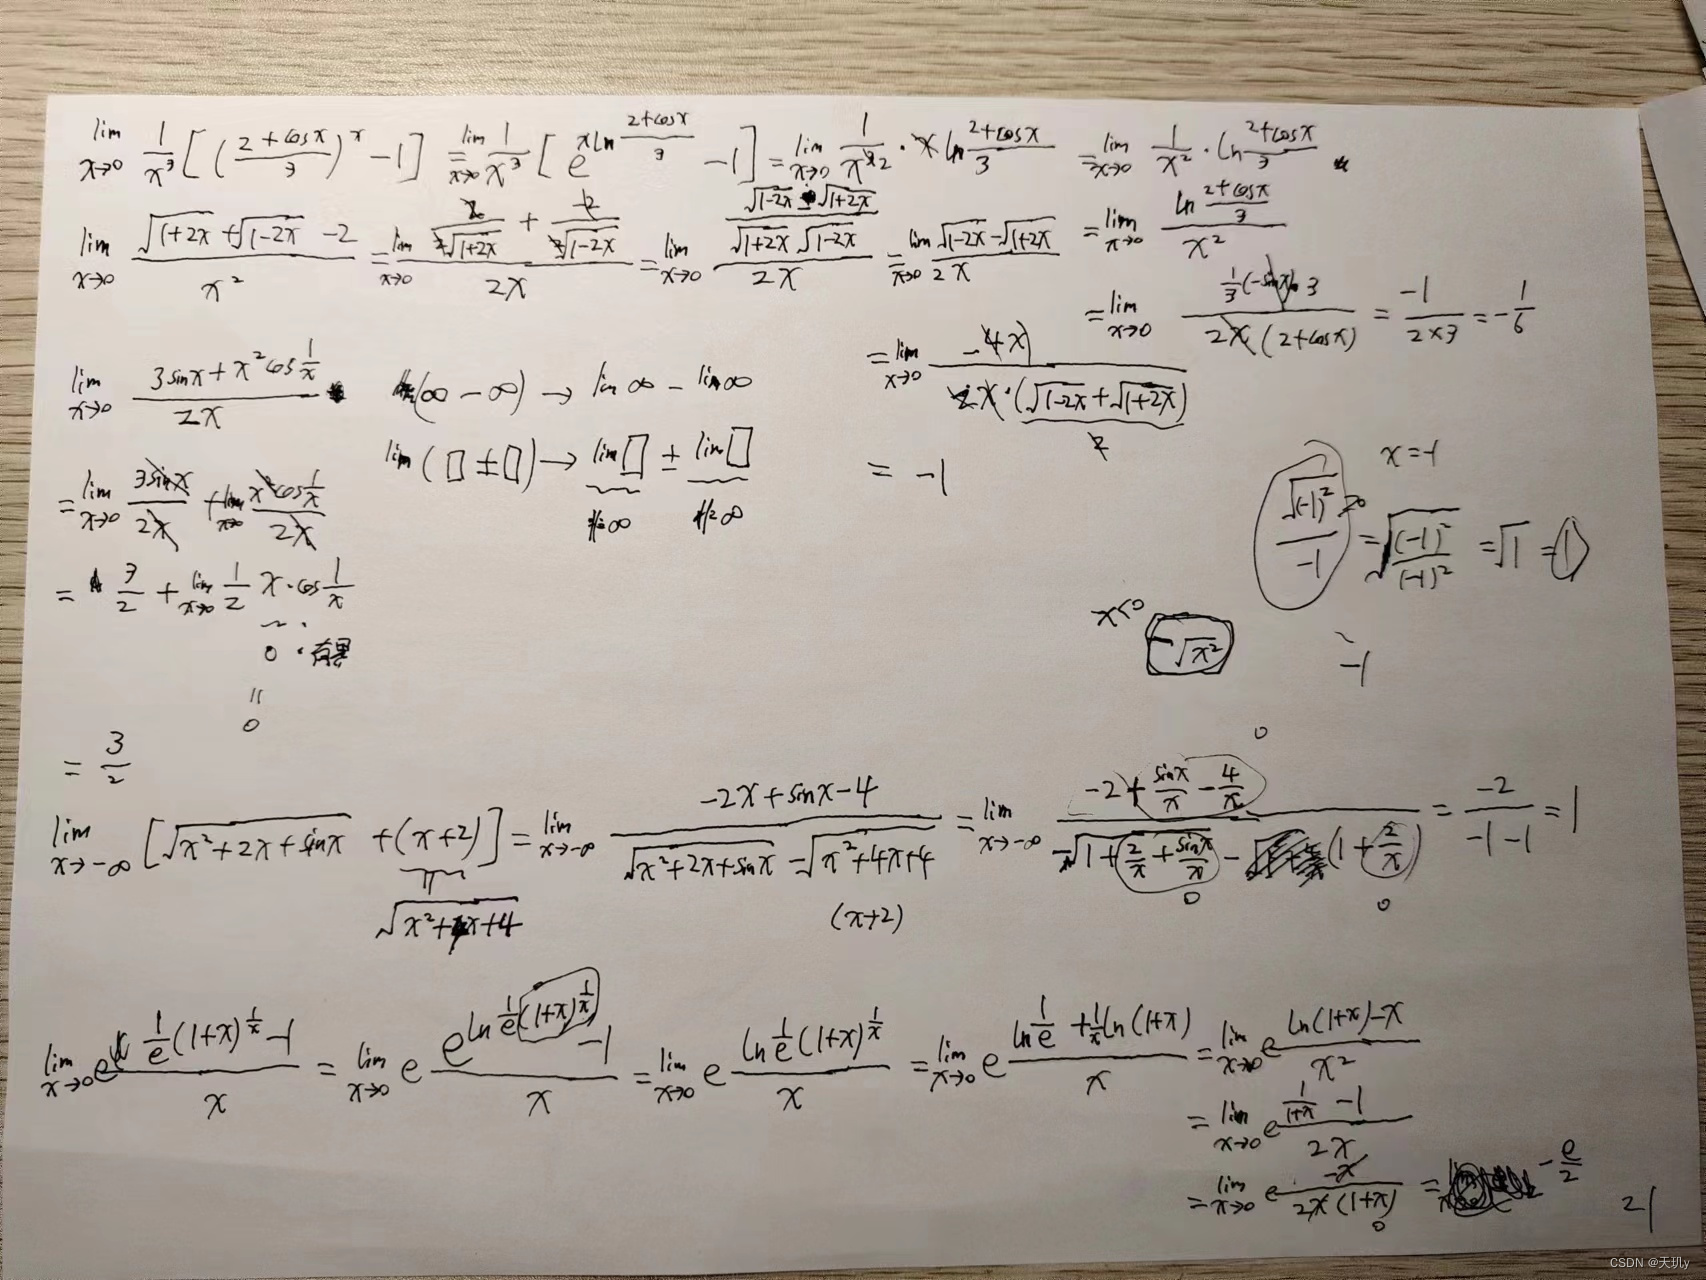 lim x→0 1/x³ [ ( (2+cosx)/3 )^x − 1 ] = lim x→0 1/x³ [ e^(x ln (2+cosx)/3) − 1 ] = lim x→0 1/x² · x ln (2+cosx)/3 = lim x→0 1/x² · ln (2+cosx)/3
= lim x→0 ( ln (2+cosx)/3 ) / x²
= lim x→0 ( 1/3 (−sinx) · 3 ) / ( 2x (2+cosx) ) = −1/(2×3) = −1/6
lim x→0 ( √(1+2x) + √(1−2x) − 2 ) / x² = lim x→0 ( 2/(2√(1+2x)) + −2/(2√(1−2x)) ) / 2x = lim x→0 ( (√(1−2x) − √(1+2x)) / (√(1+2x) √(1−2x)) ) / 2x = lim x→0 ( √(1−2x) − √(1+2x) ) / 2x
= lim x→0 −4x / ( 2x · (√(1−2x) + √(1+2x)) )
2
= −1
lim x→0 ( 3sinx + x² cos 1/x ) / 2x
= lim x→0 3sinx/2x + lim x→0 ( x² cos 1/x ) / 2x
= 3/2 + lim x→0 1/2 x · cos 1/x
0 · 有界
=
0
= 3/2
(∞ − ∞) → lim ∞ − lim ∞
lim ( □ ± □ ) → lim □ ± lim □
≠∞ ≠∞
x = −1
√(−1)² / −1 = √( (−1)² / (−1)² ) = √1 = 1
−1
x<0
−√x²
lim x→−∞ [ √(x²+2x+sinx) + (x+2) ] = lim x→−∞ ( −2x + sinx − 4 ) / ( √(x²+2x+sinx) − √(x²+4x+4) ) = lim x→−∞ ( −2 + sinx/x − 4/x ) / ( −√(1 + 2/x + sinx/x) − (1 + 2/x) ) = −2/(−1−1) = 1
0
√(x²+4x+4)
(x+2)
0
0
lim x→0 e ( 1/e (1+x)^(1/x) − 1 ) / x = lim x→0 e ( e^(ln 1/e (1+x)^(1/x)) − 1 ) / x = lim x→0 e ( ln 1/e (1+x)^(1/x) ) / x = lim x→0 e ( ln 1/e + 1/x ln(1+x) ) / x = lim x→0 e ( ln(1+x) − x ) / x²
= lim x→0 e ( 1/(1+x) − 1 ) / 2x
= lim x→0 e −x / ( 2x (1+x) ) = −e/2
0
21
CSDN @天玑y